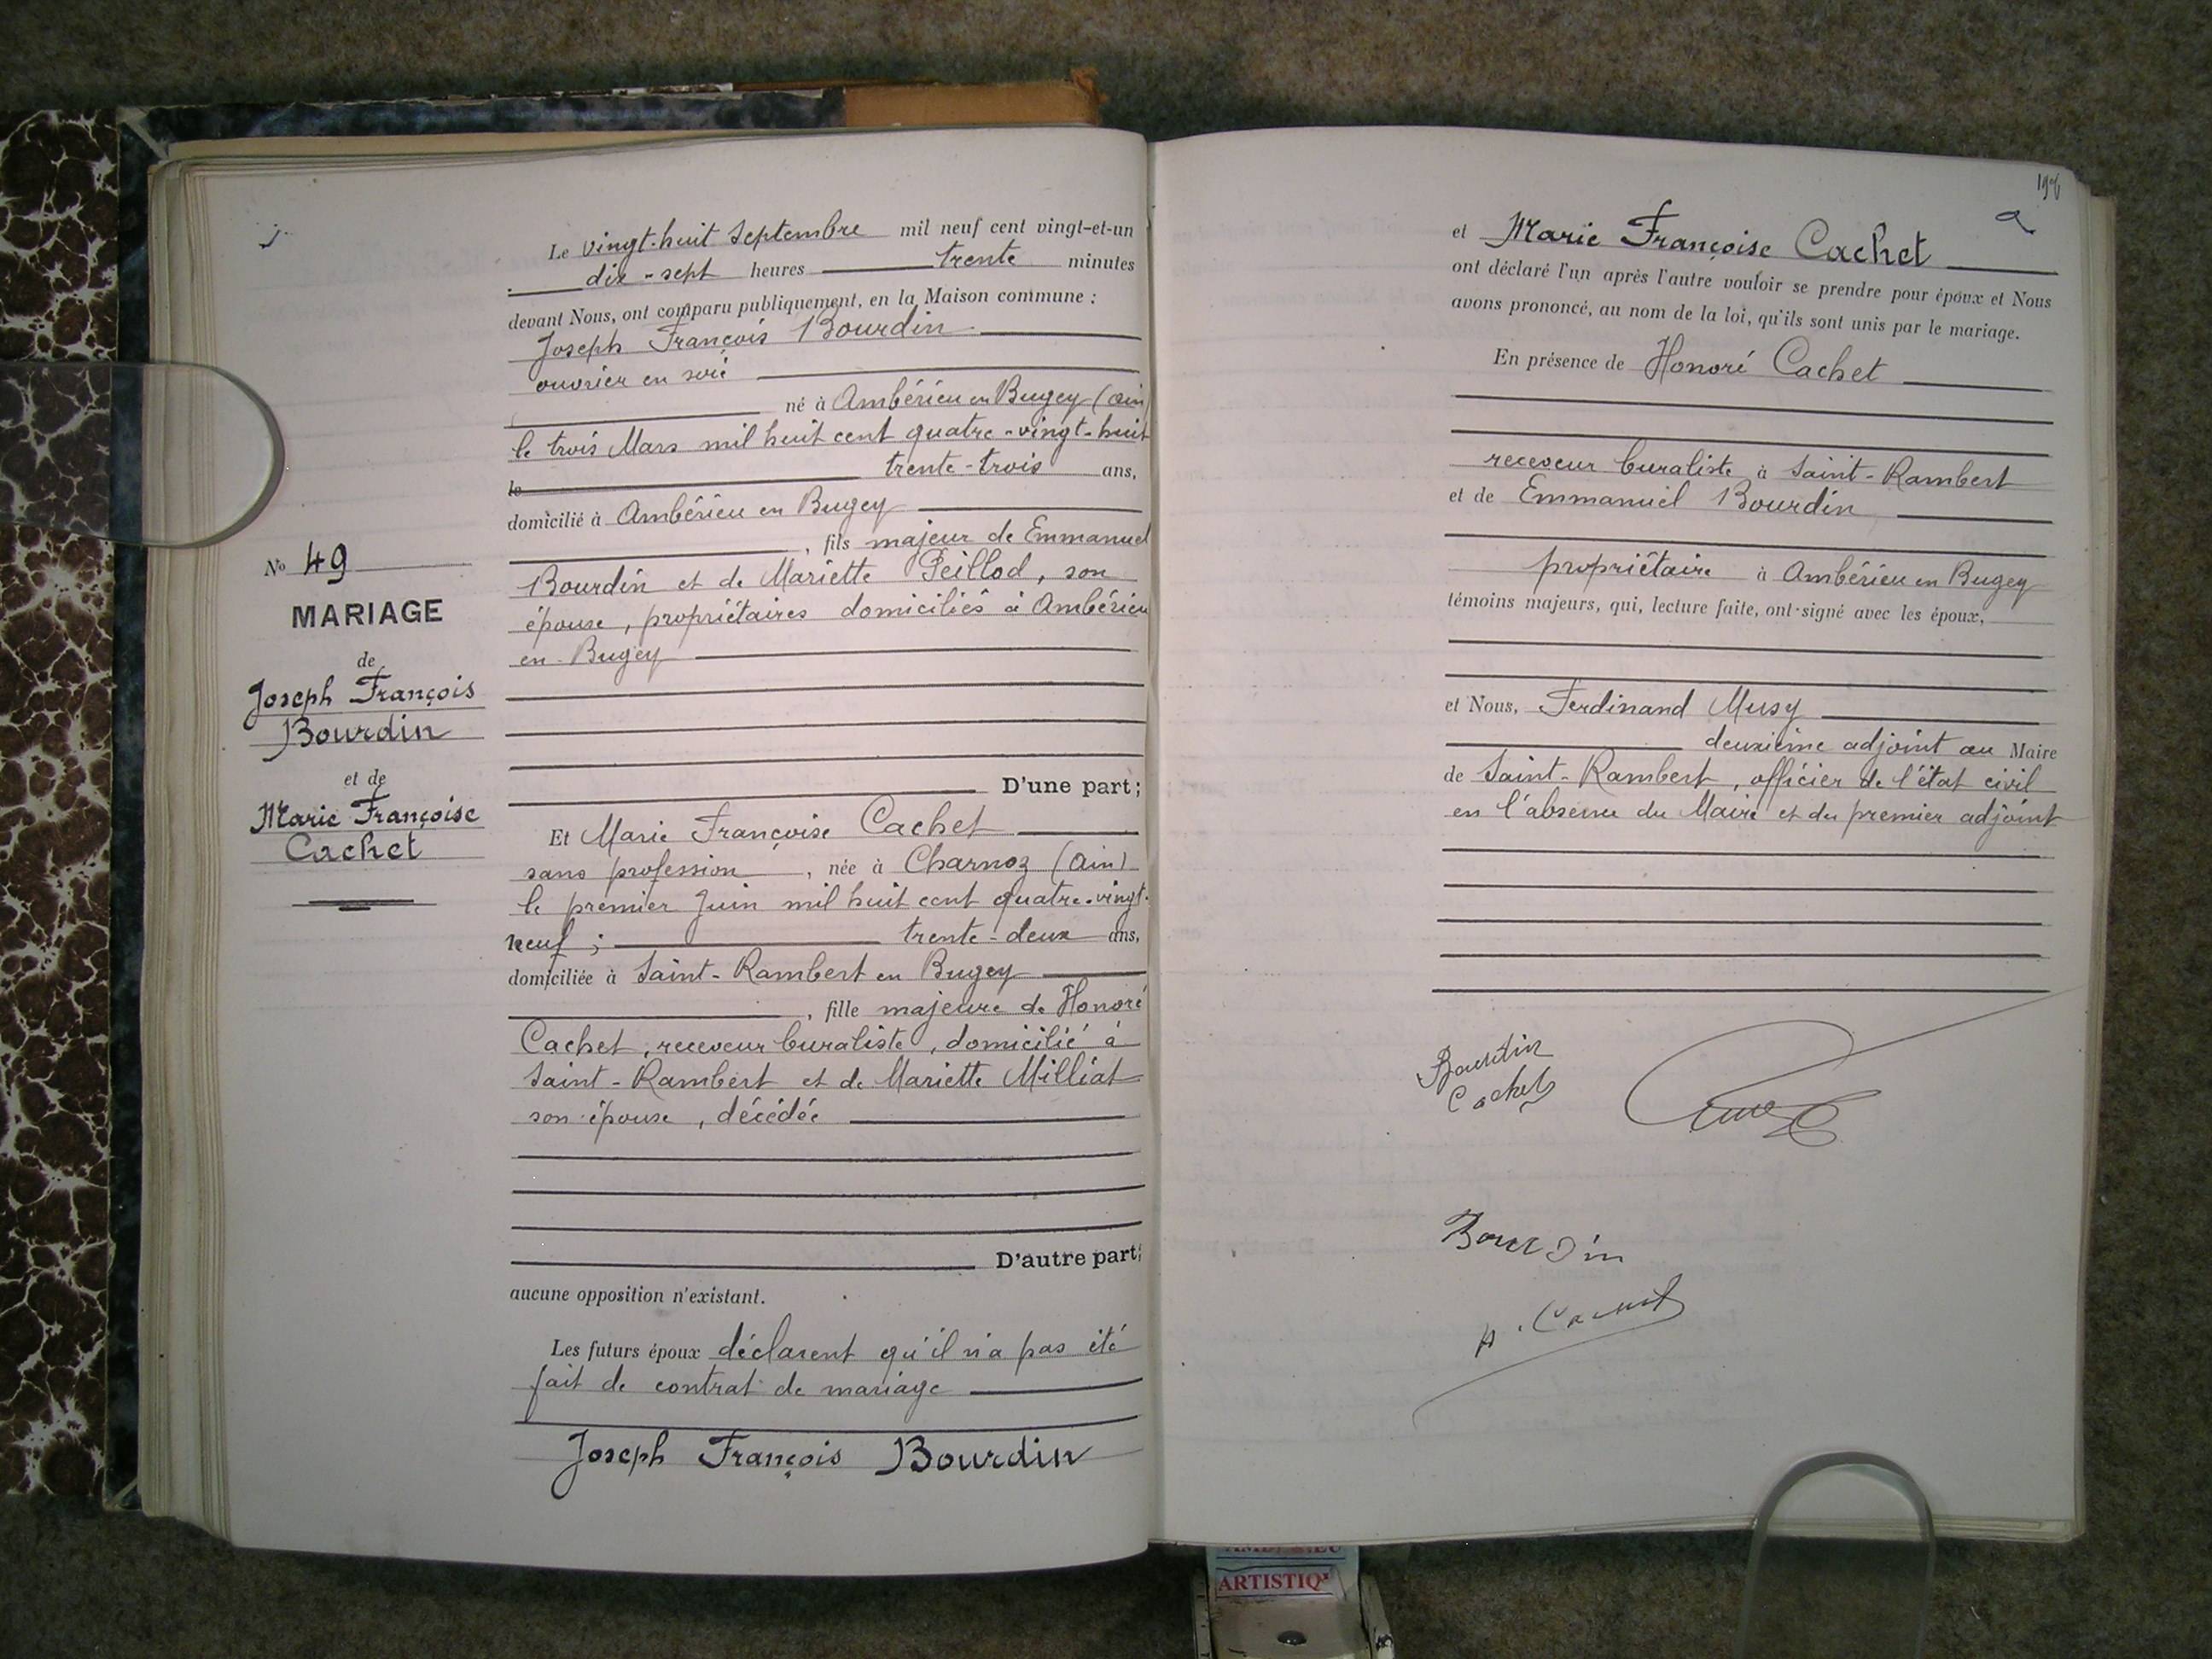 Le vingt-huit Septembre mil neuf cent vingt-et-un
dix-sept heures trente minutes
devant Nous, ont comparu publiquement, en la Maison commune :
Joseph François Bourdin
ouvrier en soie
né à Ambérieu en Bugey (ain)
le trois Mars mil huit cent quatre-vingt-huit
le trente-trois ans,
domicilié à Ambérieu en Bugey
, fils majeur de Emmanuel
Bourdin et de Mariette Peillod, son
épouse, propriétaires domiciliés à Ambérieu
en Bugey
D'une part;
Et Marie Françoise Cachet
sans profession, née à Charnoz (ain)
le premier Juin mil huit cent quatre-vingt-
neuf ; trente-deux ans,
domiciliée à Saint-Rambert en Bugey
, fille majeure de Honoré
Cachet, receveur buraliste, domicilié à
Saint-Rambert et de Mariette Milliat
son épouse, décédée
D'autre part;
aucune opposition n'existant.
Les futurs époux déclarent qu'il n'a pas été
fait de contrat de mariage
Joseph François Bourdin
No 49
MARIAGE
de
Joseph François
Bourdin
et de
Marie Françoise
Cachet
et Marie Françoise Cachet
ont déclaré l'un après l'autre vouloir se prendre pour époux et Nous
avons prononcé, au nom de la loi, qu'ils sont unis par le mariage.
En présence de Honoré Cachet
receveur buraliste à Saint-Rambert
et de Emmanuel Bourdin
propriétaire à Ambérieu en Bugey
témoins majeurs, qui, lecture faite, ont signé avec les époux,
et Nous, Ferdinand Musy
deuxième adjoint au Maire
de Saint-Rambert, officier de l'état civil
en l'absence du Maire et du premier adjoint
Bourdin
Cachet
Bourdin
H. Cachet
ARTISTIQ